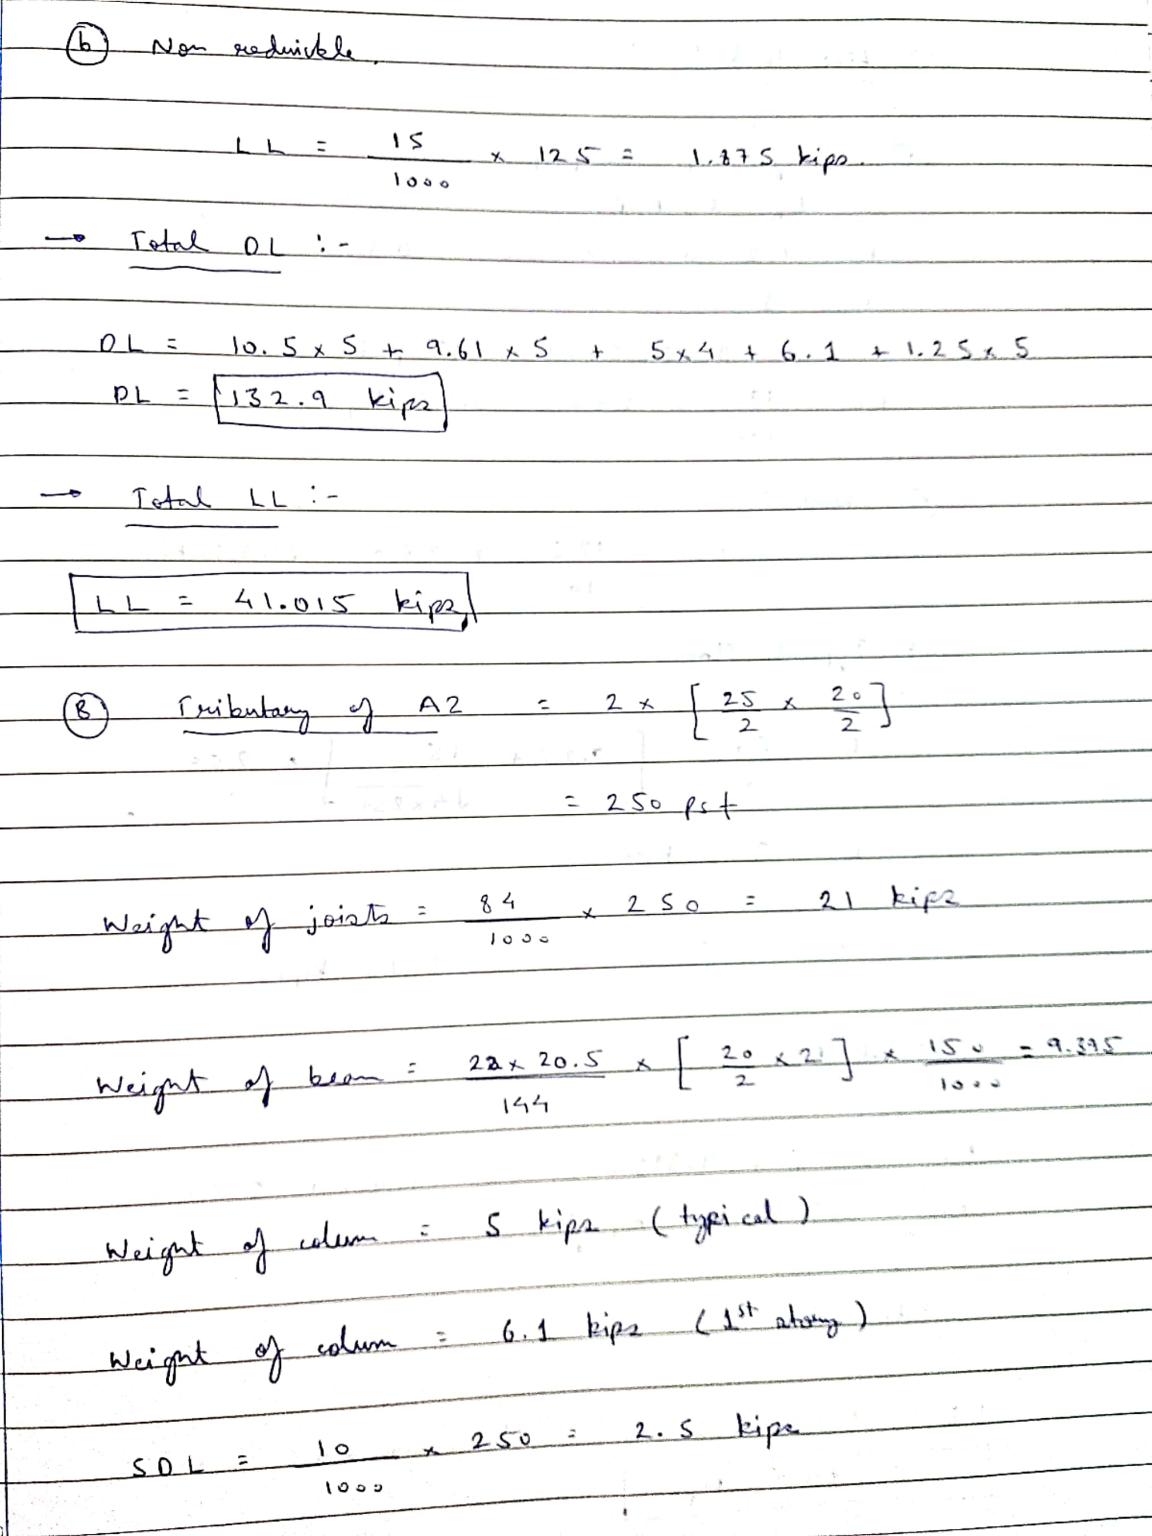 (b) Non reducible.
LL = 15/1000 x 125 = 1.875 kips.
→ Total DL :-
DL = 10.5 x 5 + 9.61 x 5 + 5x4 + 6.1 + 1.25 x 5
DL = 132.9 kips
→ Total LL :-
LL = 41.015 kips
(B) Tributary of A2 = 2 x [ 25/2 x 20/2 ]
= 250 psf
Weight of joists = 84/1000 x 250 = 21 kips
Weight of beam = 22 x 20.5/144 x [ 20/2 x 2 ] x 150/1000 = 9.395
Weight of colum = 5 kips (typical)
Weight of colum = 6.1 kips (1st story)
SDL = 10/1000 x 250 = 2.5 kips